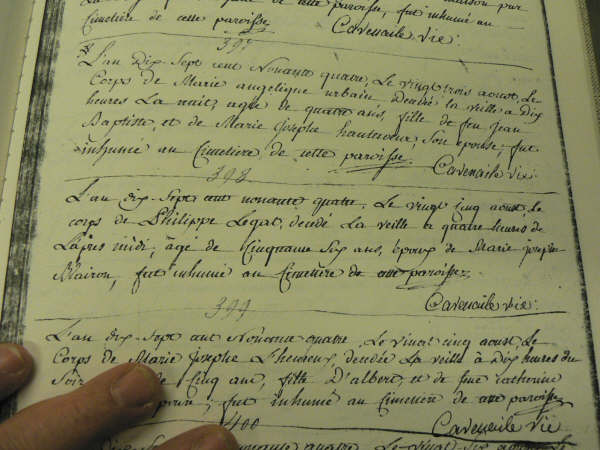 Cimetière de cette paroisse, fut inhumé au
Cavenaile Vic:
397
L'an Dix-Sept cent Nonante quatre, Le vingt trois aoust, Le
Corps de Marie angelique urbain, Decedée la veille a Dix
heures La nuitz agée de quatre ans, fille de feu Jean
Baptiste, et de Marie Josephe hautnoeur, Son epouse; fut
inhumé au Cimetière de cette paroisse.
Cavenaile Vic:
398
L'an dix-Sept cent nonante quatre, Le vingt Cinq aoust, Le
corps de Philippe Legat, decedé La veille a quatre heures de
L'apres midi; age de Cinquante Six ans, epoux de Marie joseph
Mairon, fut inhumé au Cimetière de cette paroisse.
Cavenaile Vic:
399
L'an dix-Sept cent Nonante quatre, Le vingt cinq aoust, Le
Corps de Marie Josephe L'heureux, decedée La veille à Dix heures du
Soir de Cinq ans, fille D'albert, et de feue Catherine
; fut inhumé au Cimetière de cette paroisse
400
Cavenaile Vic
nonante quatre, Le vingt Six aoust, Le